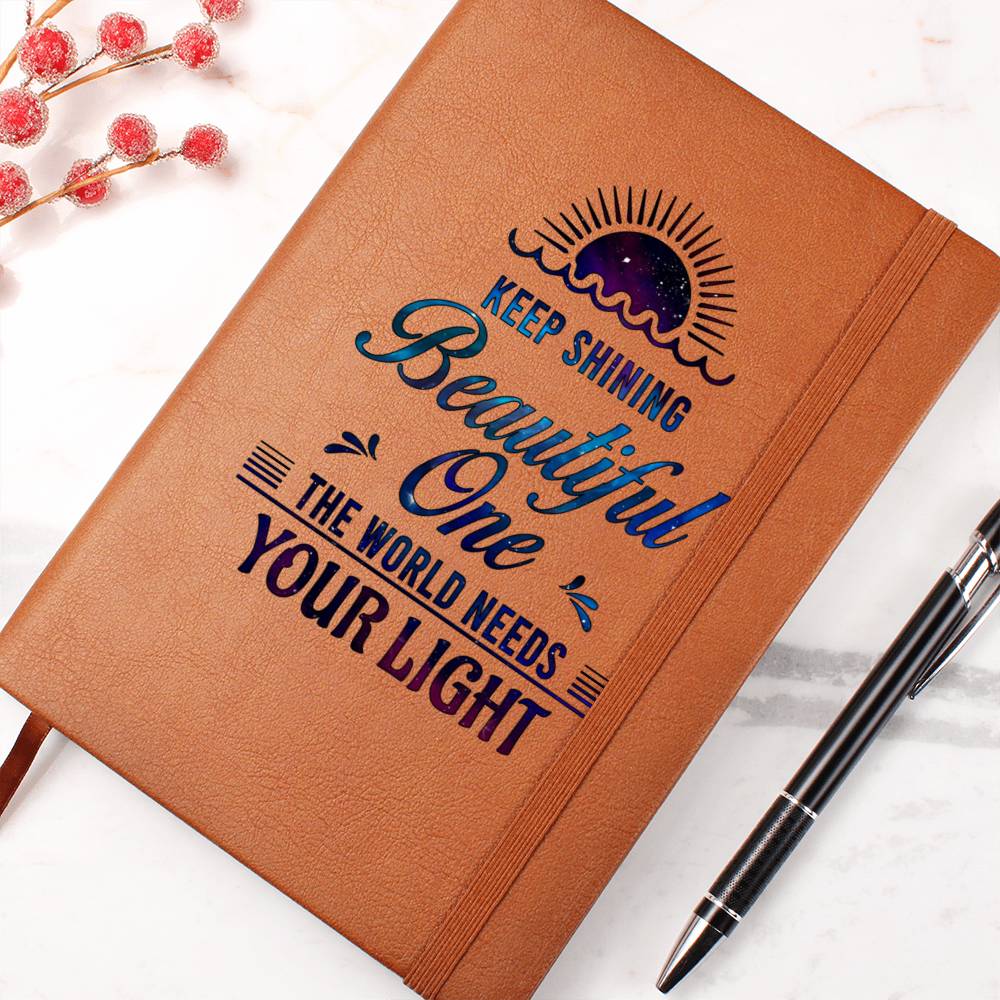 KEEP SHINING
Beautiful
One
THE WORLD NEEDS
YOUR LIGHT